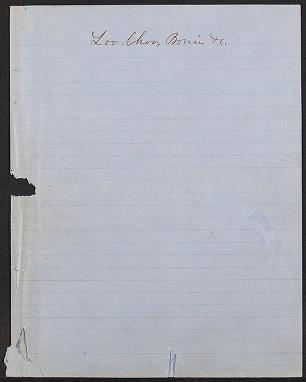 Loo Choo, Bonin &c.